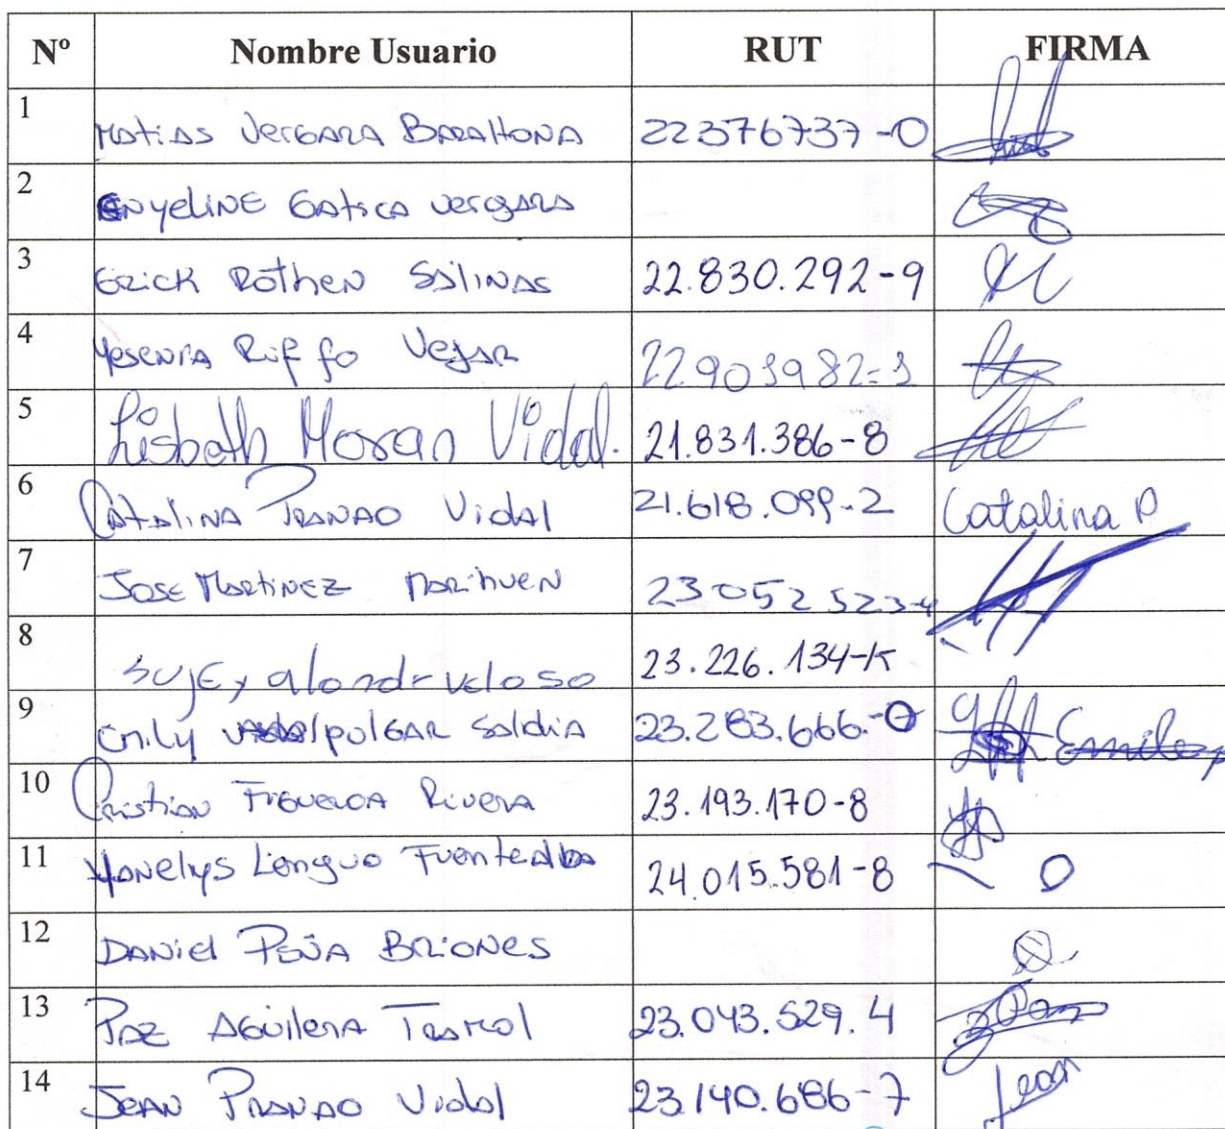 Nº Nombre Usuario RUT FIRMA
1 Matias Vergara Barahona 22376737-0
2 Enyeline Gatica Vergara
3 Erick Rothen Salinas 22.830.292-9
4 Yesenia Riffo Vejar 22901982-1
5 Lisbeth Moran Vidal. 21.831.386-8
6 Catalina Pranao Vidal 21.618.099-2 Catalina P
7 Jose Martinez Marihuen 23052523-4
8 sujey alondr veloso 23.226.134-K
9 Emily pulgar Saldia 23.283.666-0 Emiley
10 Cristian Figueroa Rivera 23.193.170-8
11 Yanelys Lengua Fuentealba 24.015.581-8
12 Daniel Peña Briones
13 Paz Aguilera 23.043.529.4 Paz
14 Jean Pranao Vidal 23.140.686-7 Jean